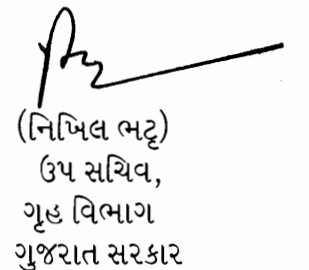 (નિખિલ ભટ્ટ)
ઉપ સચિવ,
ગૃહ વિભાગ
ગુજરાત સરકાર